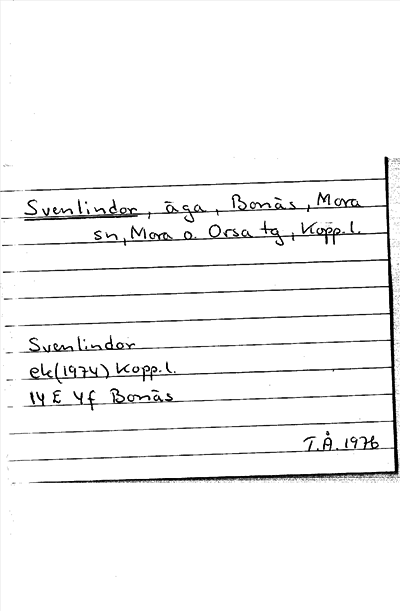 Svenlindor, äga, Bonäs, Mora
sn, Mora o. Orsa tg, Kopp.l.
Svenlindor
ek(1974) Kopp.l.
14 E 4f Bonäs
T.Å. 1976